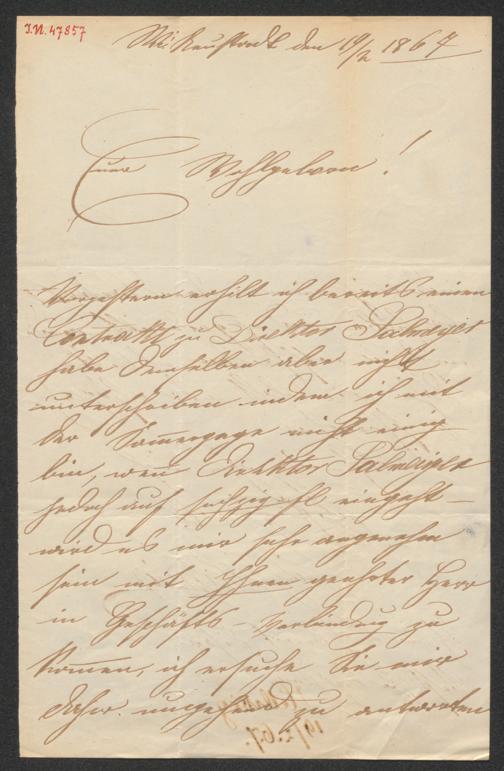 I.N. 47857
Wr. Neustadt den 19/2 1867
Euer Wohlgeboren!
Vorgestern erhilt ich bereits einen
Contrakt zu Direktor
habe denselben aber nicht
unterschrieben indem ich mit
der Somergage nicht einig
bin, wen Direktor
jedoch auf sechzig fl eingeht –
wird es mir sehr angenehm
sein mit Ihnen geehrter Herr
in Geschäfts-Verbindung zu
komen, ich ersuche Sie mir
daher umgehend zu antworten